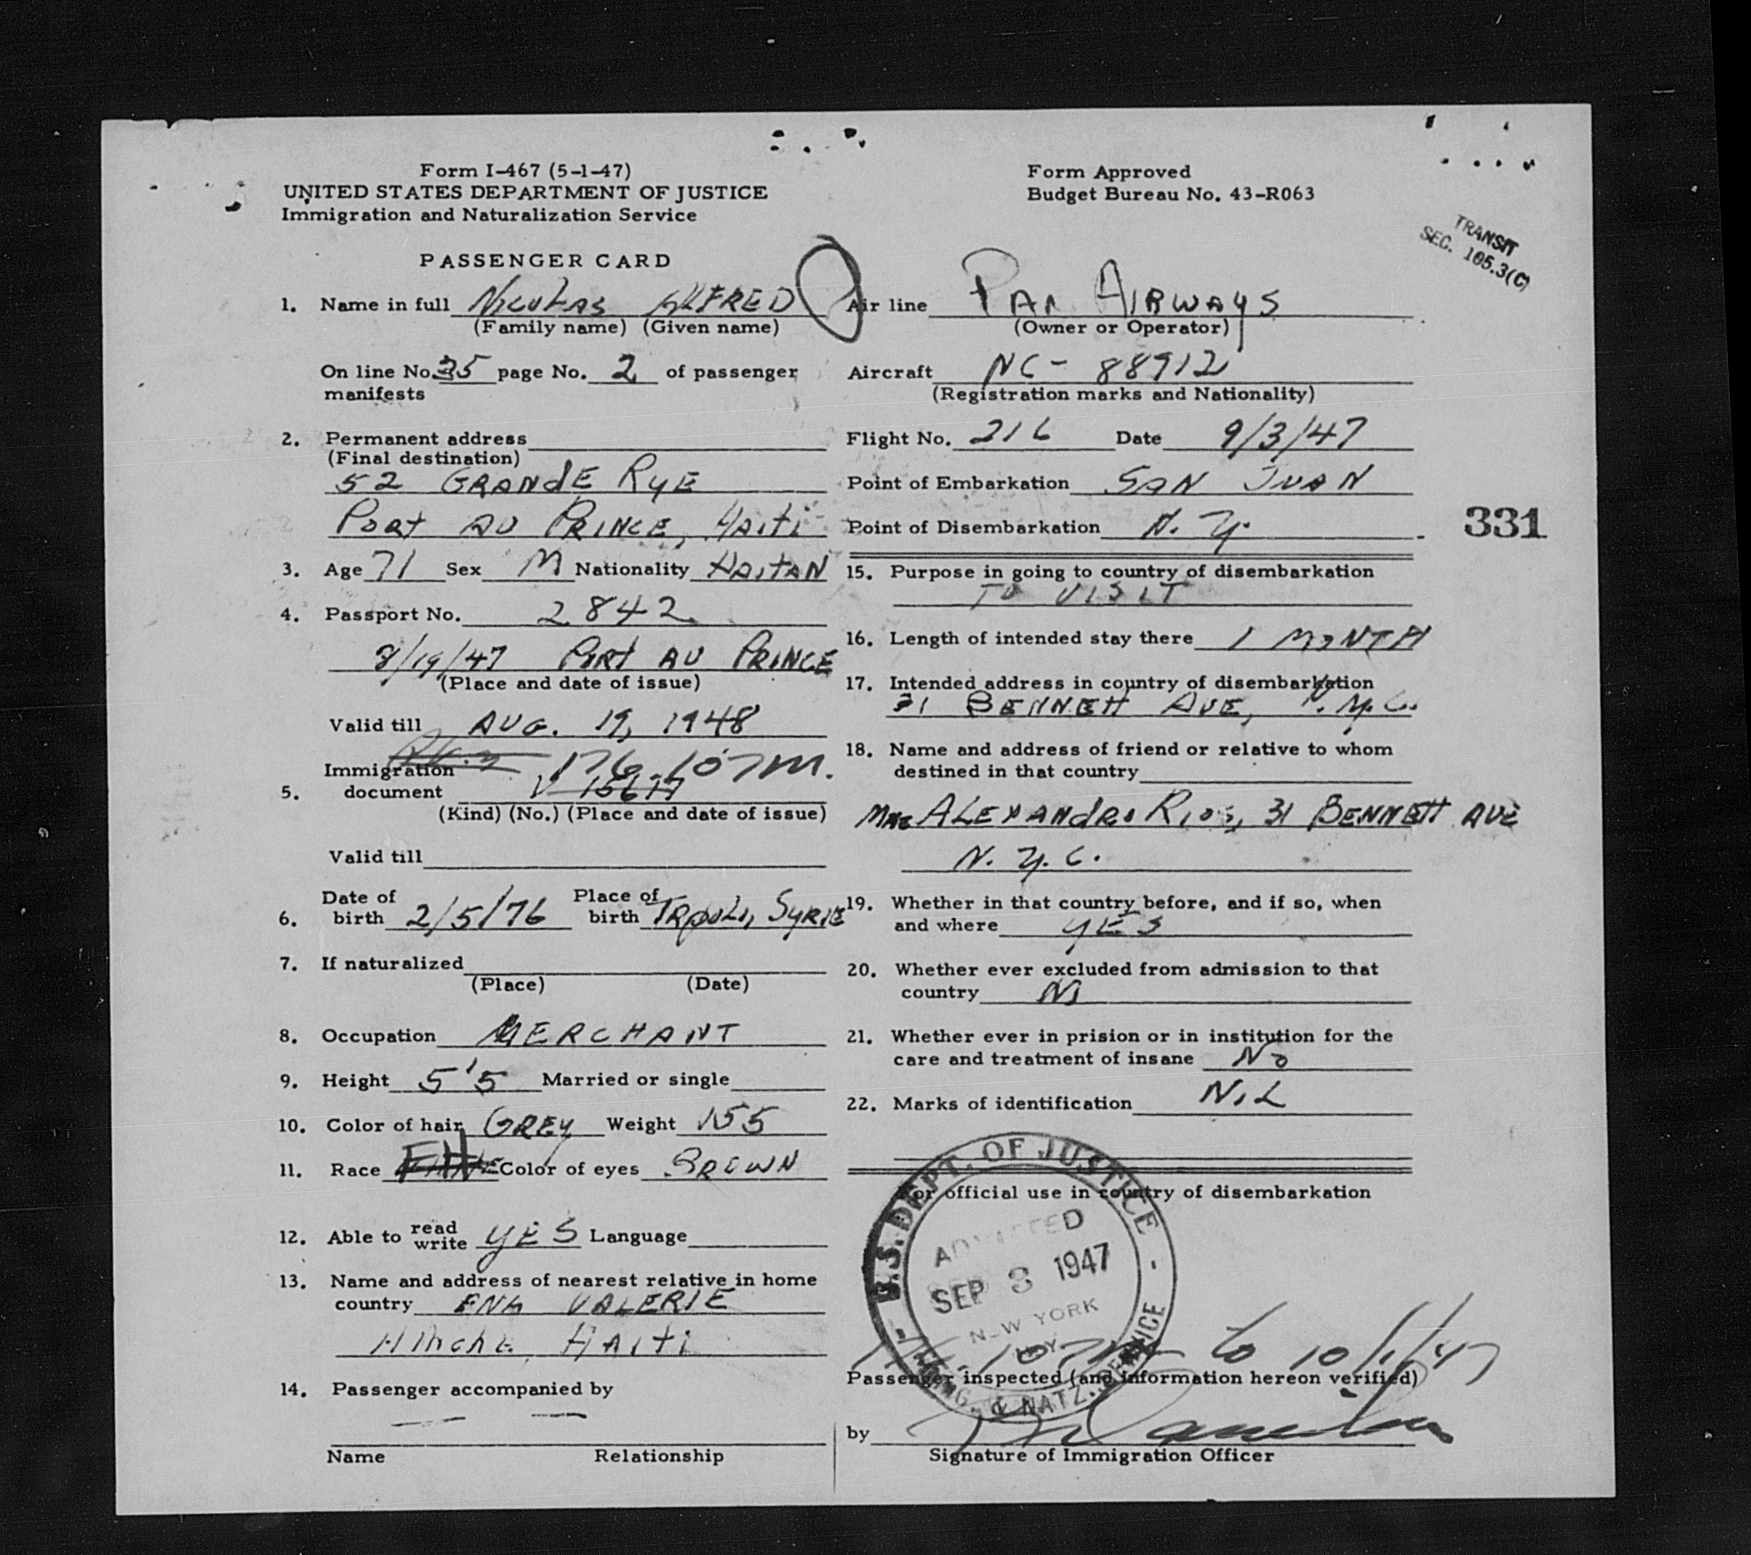 Form I-467 (5-1-47)
UNITED STATES DEPARTMENT OF JUSTICE
Immigration and Naturalization Service
Form Approved
Budget Bureau No. 43-R063
TRANSIT
SEC. 105.3(C)
PASSENGER CARD
1. Name in full NICOLAS ALFRED
(Family name) (Given name)
On line No. 35 page No. 2 of passenger
manifests
2. Permanent address
(Final destination)
52 GRANDE RUE
PORT AU PRINCE, HAITI
3. Age 71 Sex M Nationality HAITAN
4. Passport No. 2842
8/19/47 PORT AU PRINCE
(Place and date of issue)
Valid till AUG. 19, 1948
176.107M.
Immigration
5. document V
(Kind) (No.) (Place and date of issue)
Valid till
6. Date of birth 2/5/76 Place of birth TRIPOLI, SYRIE
7. If naturalized
(Place) (Date)
8. Occupation MERCHANT
9. Height 5'5 Married or single
10. Color of hair GREY Weight 155
11. Race Color of eyes BROWN
12. Able to read write YES Language
13. Name and address of nearest relative in home
country VALERIE
HINCHE, HAITI
14. Passenger accompanied by
Name Relationship
Air line PAN AIRWAYS
(Owner or Operator)
Aircraft NC-88912
(Registration marks and Nationality)
Flight No. 216 Date 9/3/47
Point of Embarkation SAN JUAN
Point of Disembarkation N.Y.
331
15. Purpose in going to country of disembarkation
TO VISIT
16. Length of intended stay there 1 MONTH
17. Intended address in country of disembarkation
31 BENNETT AVE, N.Y.C.
18. Name and address of friend or relative to whom
destined in that country
ALEXANDRO RIOS, 31 BENNETT AVE
N.Y.C.
19. Whether in that country before, and if so, when
and where YES
20. Whether ever excluded from admission to that
country NO
21. Whether ever in prision or in institution for the
care and treatment of insane NO
22. Marks of identification NIL
For official use in country of disembarkation
U.S. DEPT. OF JUSTICE - IMMIG. & NATZ. SERVICE -
ADMITTED
SEP 3 1947
NEW YORK
N.Y.
to 10/1/47
Passenger inspected (and information hereon verified)
by
Signature of Immigration Officer